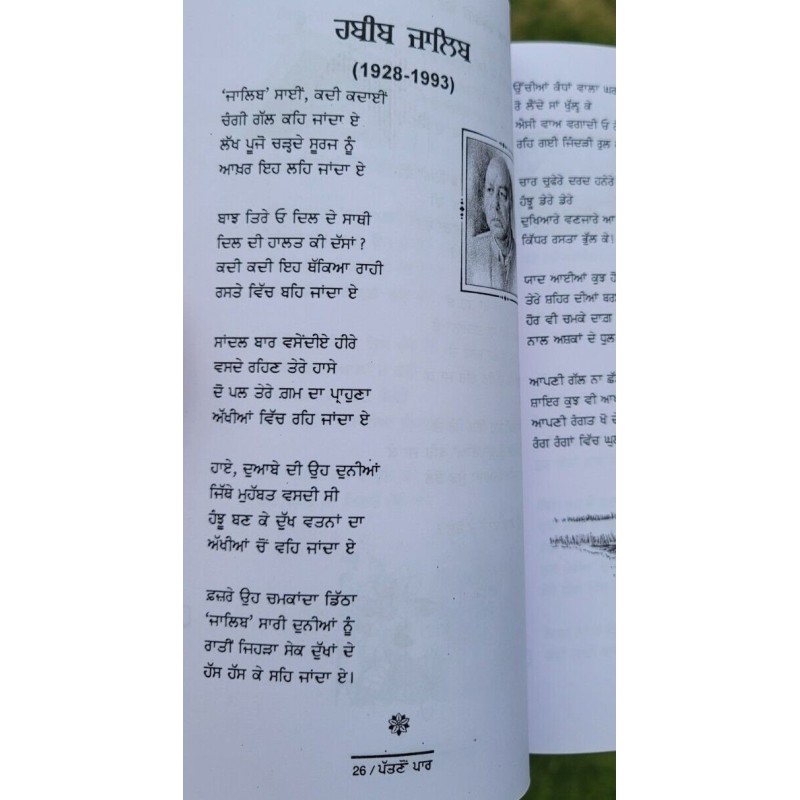 ਹਬੀਬ ਜਾਲਿਬ
(1928-1993)
'ਜਾਲਿਬ' ਸਾਈਂ, ਕਦੀ ਕਦਾਈਂ
ਚੰਗੀ ਗੱਲ ਕਹਿ ਜਾਂਦਾ ਏ
ਲੱਖ ਪੂਜੋ ਚੜ੍ਹਦੇ ਸੂਰਜ ਨੂੰ
ਆਖ਼ਰ ਇਹ ਲਹਿ ਜਾਂਦਾ ਏ
ਬਾਝ ਤਿਰੇ ਓ ਦਿਲ ਦੇ ਸਾਥੀ
ਦਿਲ ਦੀ ਹਾਲਤ ਕੀ ਦੱਸਾਂ ?
ਕਦੀ ਕਦੀ ਇਹ ਥੱਕਿਆ ਰਾਹੀ
ਰਸਤੇ ਵਿੱਚ ਬਹਿ ਜਾਂਦਾ ਏ
ਸਾਂਦਲ ਬਾਰ ਵਸੇਂਦੀਏ ਹੀਰੇ
ਵਸਦੇ ਰਹਿਣ ਤੇਰੇ ਹਾਸੇ
ਦੋ ਪਲ ਤੇਰੇ ਗ਼ਮ ਦਾ ਪ੍ਰਾਹੁਣਾ
ਅੱਖੀਆਂ ਵਿੱਚ ਰਹਿ ਜਾਂਦਾ ਏ
ਹਾਏ, ਦੁਆਬੇ ਦੀ ਉਹ ਦੁਨੀਆਂ
ਜਿੱਥੇ ਮੁਹੱਬਤ ਵਸਦੀ ਸੀ
ਹੰਝੂ ਬਣ ਕੇ ਦੁੱਖ ਵਤਨਾਂ ਦਾ
ਅੱਖੀਆਂ ਚੋਂ ਵਹਿ ਜਾਂਦਾ ਏ
ਫ਼ਜ਼ਰੇ ਉਹ ਚਮਕਾਂਦਾ ਡਿੱਠਾ
'ਜਾਲਿਬ' ਸਾਰੀ ਦੁਨੀਆਂ ਨੂੰ
ਰਾਤੀਂ ਜਿਹੜਾ ਸੇਕ ਦੁੱਖਾਂ ਦੇ
ਹੱਸ ਹੱਸ ਕੇ ਸਹਿ ਜਾਂਦਾ ਏ।
26 / ਪੱਤਣੋਂ ਪਾਰ
ਉੱਚੀਆਂ ਕੰਧਾਂ ਵਾਲਾ
ਰੋ ਲੈਂਦੇ ਸਾਂ ਖੁੱਲ੍ਹ ਕੇ
ਐਸੀ ਵਾਅ ਵਗਾਦੀ ਓ
ਰਹਿ ਗਈ ਜਿੰਦੜੀ ਰੁਲ
ਚਾਰ ਚੁਫੇਰੇ ਦਰਦ ਹਨੇਰੇ
ਹੰਝੂ ਡੇਰੇ ਡੇਰੇ
ਦੁਖਿਆਰੇ ਵਣਜਾਰੇ ਆ
ਕਿੱਧਰ ਰਸਤਾ ਭੁੱਲ ਕੇ।
ਯਾਦ ਆਈਆਂ ਕੁਝ
ਤੇਰੇ ਸ਼ਹਿਰ ਦੀਆਂ
ਹੋਰ ਵੀ ਚਮਕੇ ਦਾਗ਼
ਨਾਲ ਅਸ਼ਕਾਂ ਦੇ ਧੁਲ
ਆਪਣੀ ਗੱਲ ਨਾ
ਸ਼ਾਇਰ ਕੁਝ ਵੀ
ਆਪਣੀ ਰੰਗਤ ਖੋ
ਰੰਗ ਰੰਗਾਂ ਵਿੱਚ